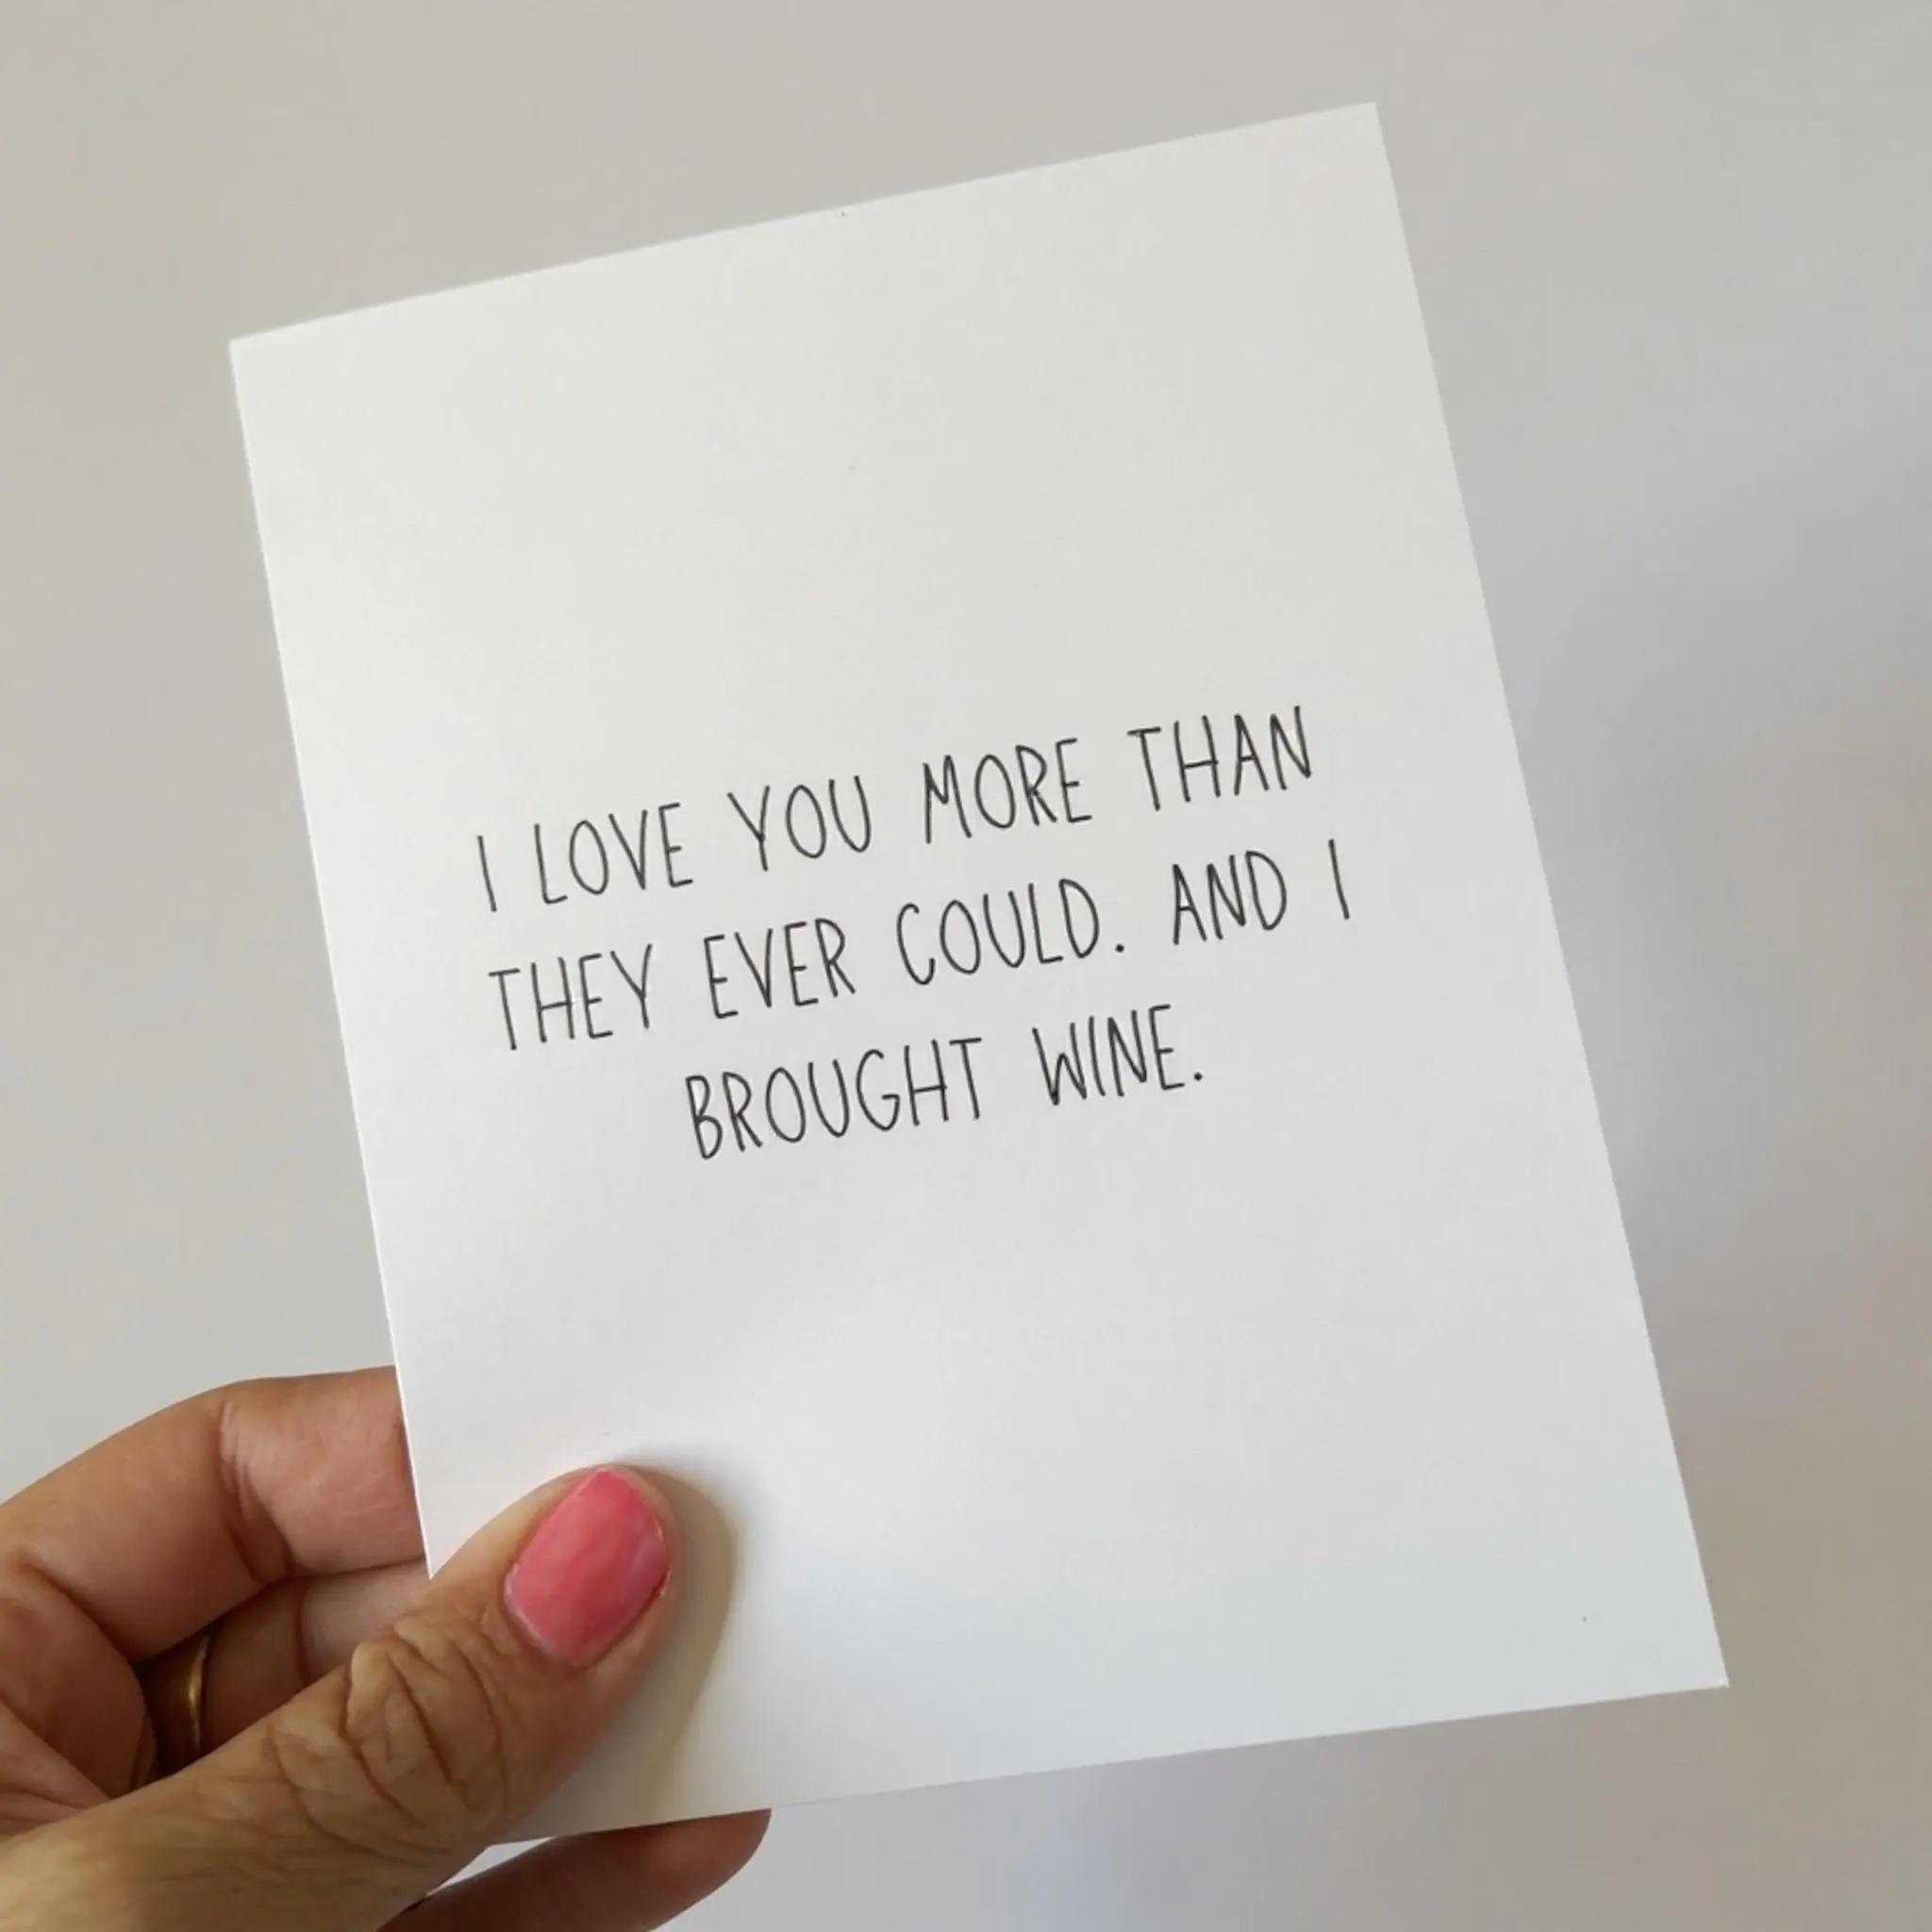 I LOVE YOU MORE THAN
THEY EVER COULD. AND I
BROUGHT WINE.